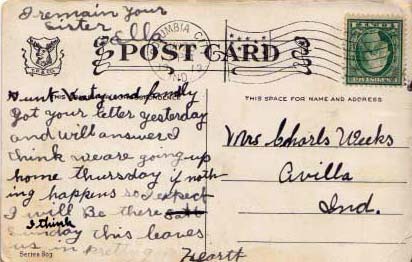 I remain your
Sister
Ella
POST CARD
UMBIA C
THIS
ESPONDENCE
THIS SPACE FOR NAME AND ADDRESS
Aunt Katy and family
Got your letter yesterday
and will answer I
think we are going up
home Thursday if noth
ing happens so I expect
I will Be there
I think
Sunday this leaves
us in pretty good
Heartt
Mrs Charls Weeks
Avilla
Ind.
Series 803